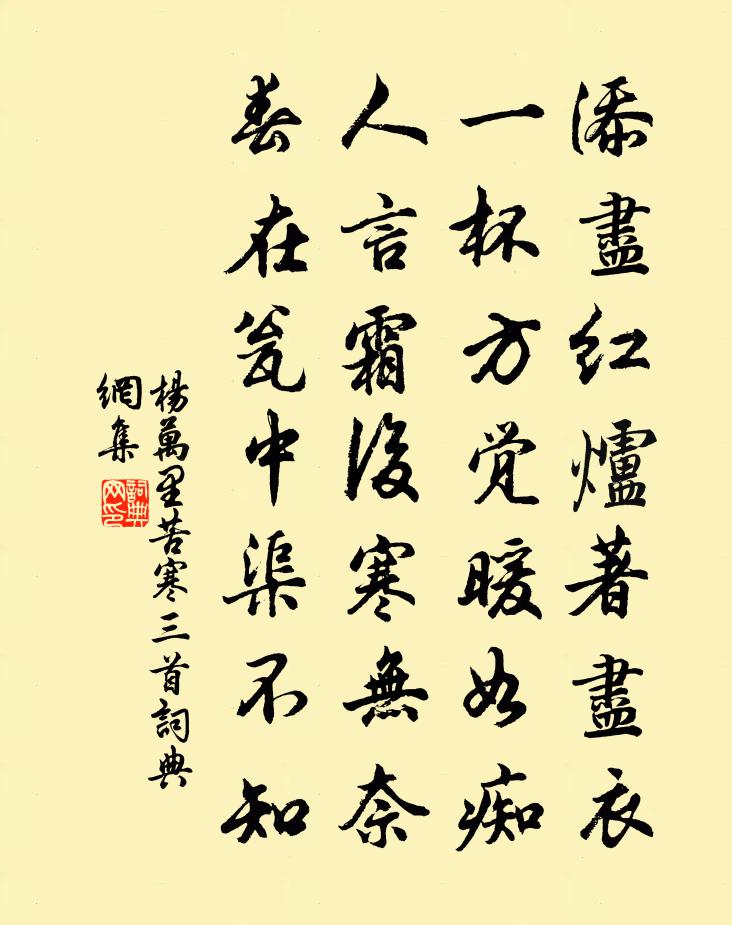 添盡红爐著盡衣
一杯方觉暖如痴
人言霜後寒無奈
春在瓮中渠不知
楊萬里苦寒三首詞典
網集
詞典
网印